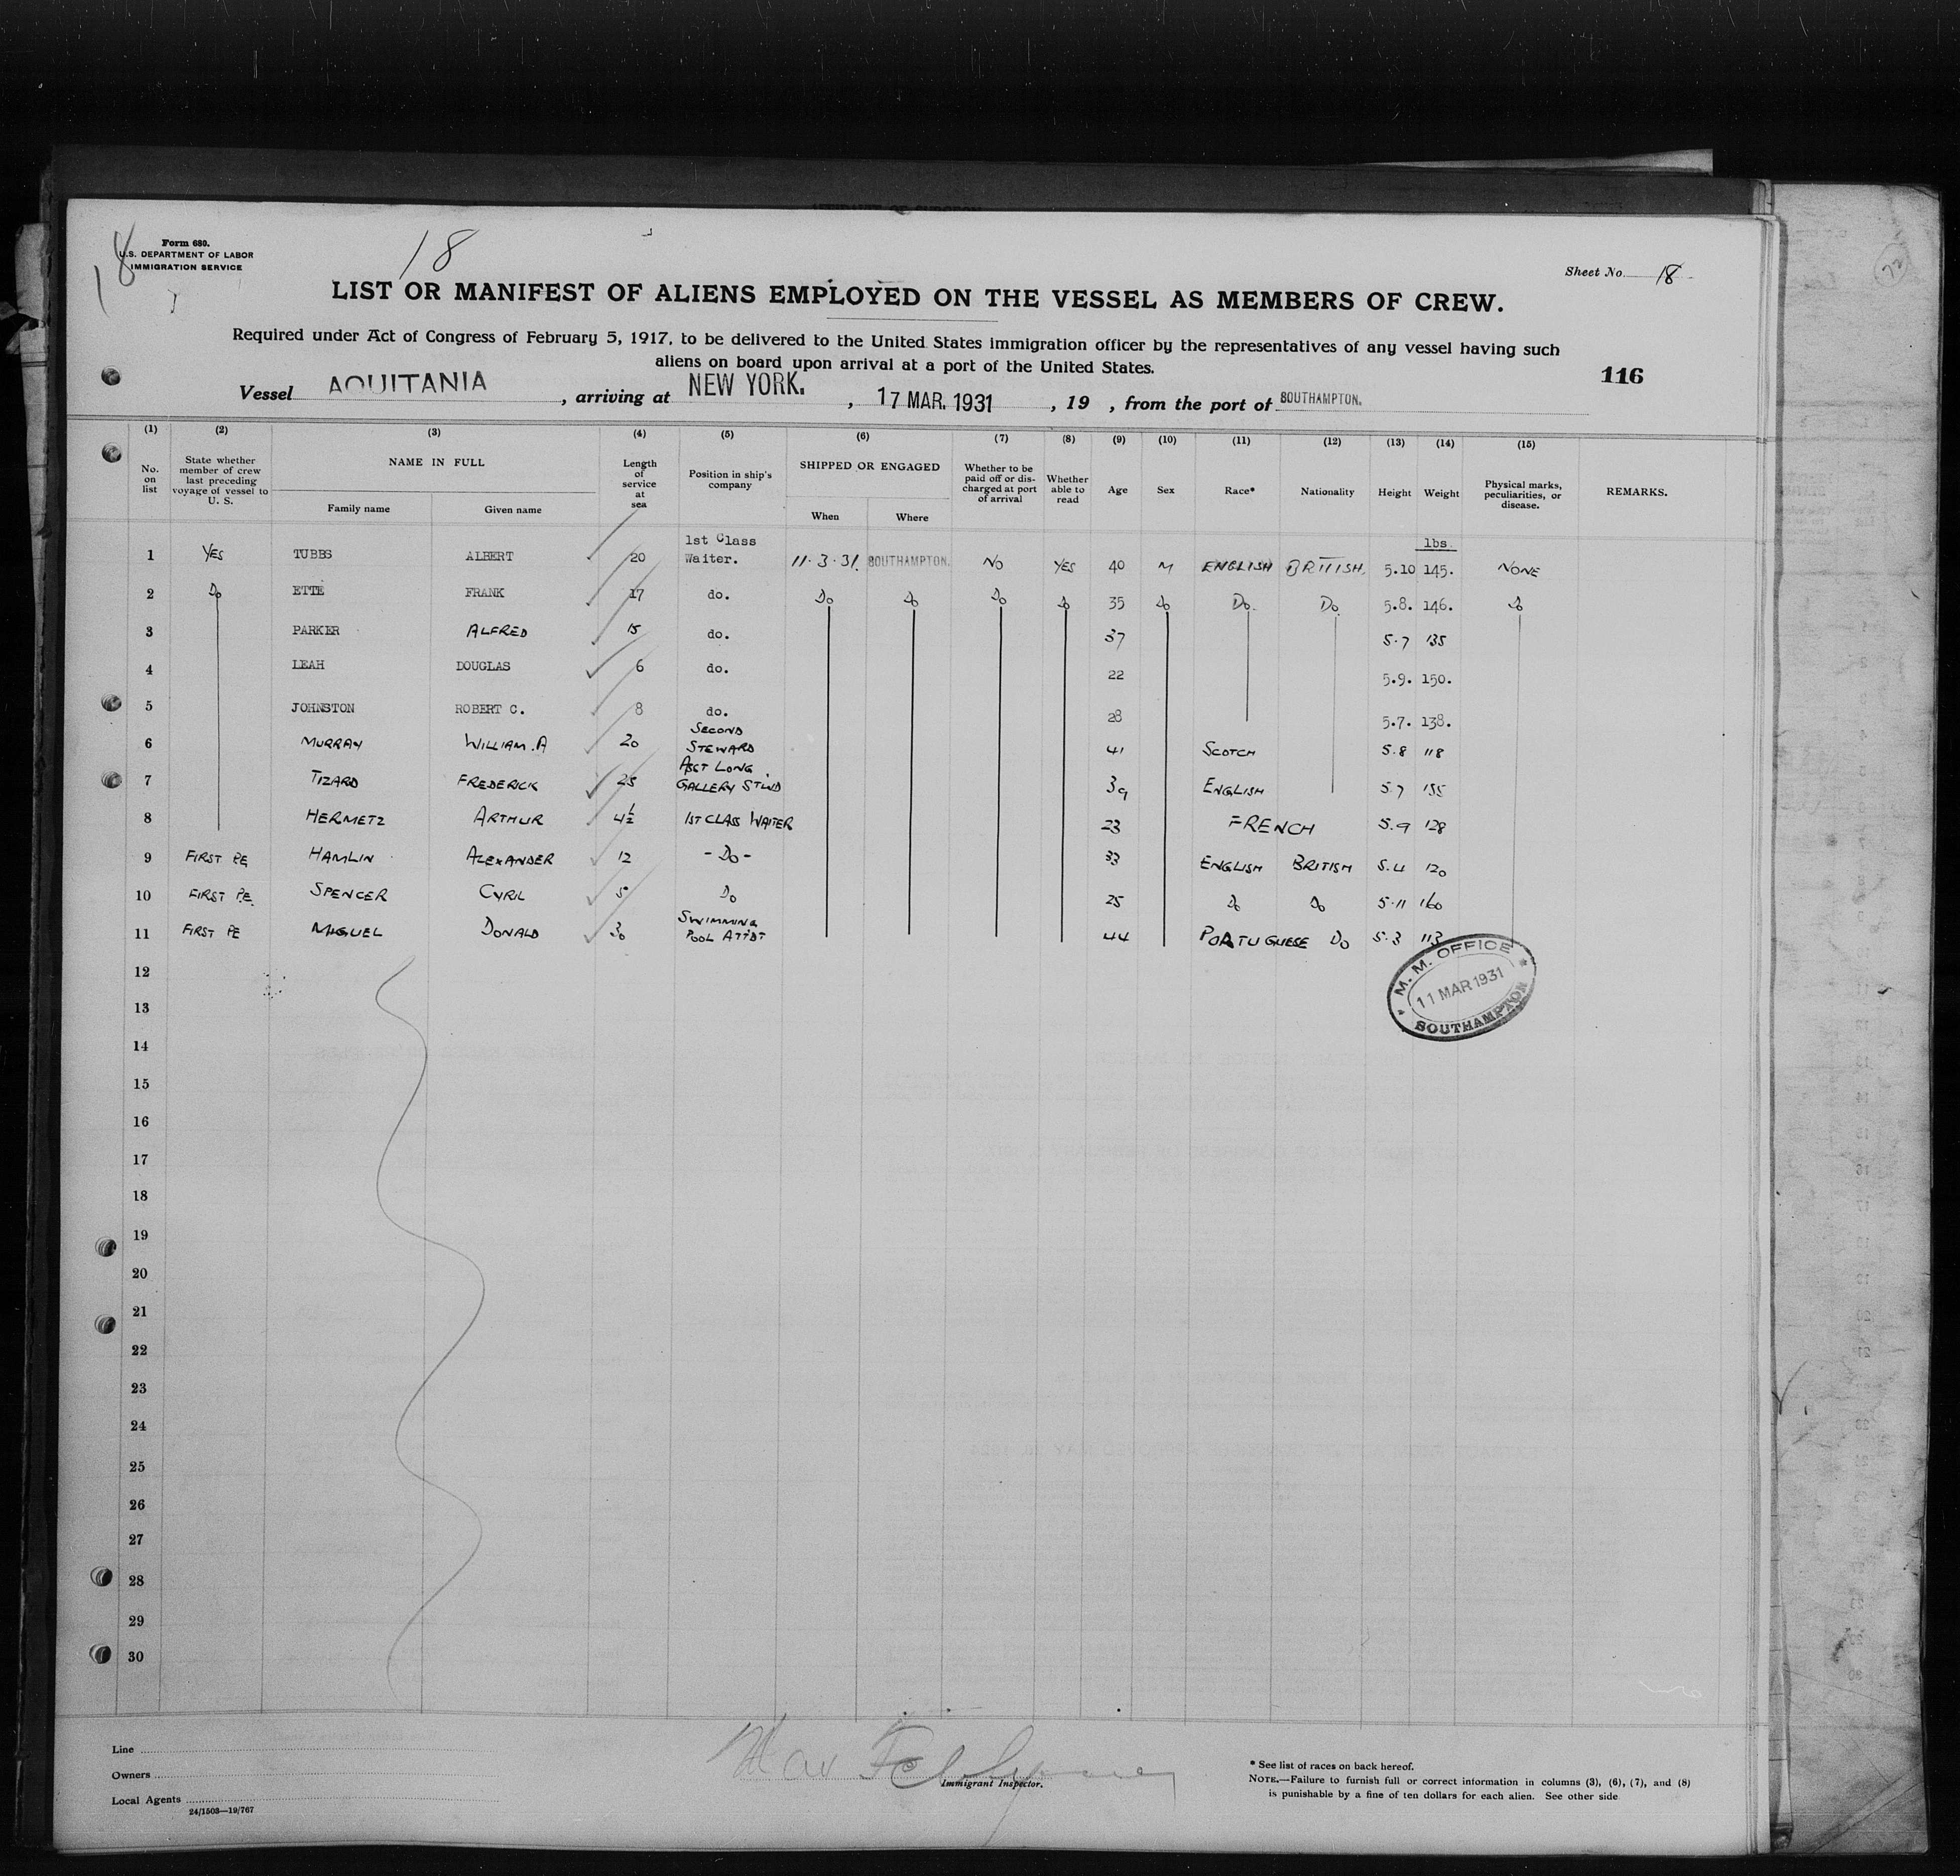 18
Form 680.
U.S. DEPARTMENT OF LABOR
IMMIGRATION SERVICE
18
Sheet No. 18
LIST OR MANIFEST OF ALIENS EMPLOYED ON THE VESSEL AS MEMBERS OF CREW.
Required under Act of Congress of February 5, 1917, to be delivered to the United States immigration officer by the representatives of any vessel having such
aliens on board upon arrival at a port of the United States.
116
Vessel AQUITANIA, arriving at NEW YORK., 17 MAR. 1931, 19 , from the port of SOUTHAMPTON.
(1) (2) (3) (4) (5) (6) (7) (8) (9) (10) (11) (12) (13) (14) (15)
No. on list
State whether member of crew last preceding voyage of vessel to U. S.
NAME IN FULL
Family name Given name
Length of service at sea
Position in ship's company
SHIPPED OR ENGAGED
When Where
Whether to be paid off or discharged at port of arrival
Whether able to read
Age Sex Race* Nationality Height Weight
Physical marks, peculiarities, or disease.
REMARKS.
lbs
1 YES TUBBS ALBERT 20 1st Class Waiter. 11.3.31. SOUTHAMPTON. NO YES 40 M ENGLISH BRITISH. 5.10 145. NONE
2 Do ETTE FRANK 17 do. Do Do Do Do 35 Do Do. Do. 5.8. 146. Do
3 PARKER ALFRED 15 do. 37 5.7 135
4 LEAH DOUGLAS 6 do. 22 5.9. 150.
5 JOHNSTON ROBERT C. 8 do. 28 5.7. 138.
6 MURRAY WILLIAM.A 20 SECOND STEWARD 41 SCOTCH 5.8 118
7 TIZARD FREDERICK 25 ASST LONG GALLERY STWD 39 ENGLISH 5.7 155
8 HERMETZ ARTHUR 4½ 1ST CLASS WAITER 23 FRENCH 5.9 128
9 FIRST PE HAMLIN ALEXANDER 12 -Do- 33 ENGLISH BRITISH 5.4 120
10 FIRST P.E. SPENCER CYRIL 5 Do 25 Do Do 5.11 160
11 FIRST PE MIGUEL DONALD SWIMMING POOL ATTDT 44 PORTUGUESE Do 5.3 113
M. M. OFFICE
11 MAR 1931
SOUTHAMPTON
12
13
14
15
16
17
18
19
20
21
22
23
24
25
26
27
28
29
30
Line
Owners
Local Agents
24/1503—19/767
Immigrant Inspector.
* See list of races on back hereof.
NOTE.—Failure to furnish full or correct information in columns (3), (6), (7), and (8)
is punishable by a fine of ten dollars for each alien. See other side